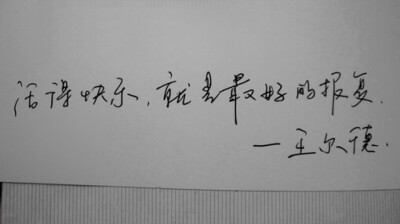 活得快乐,就是最好的报复.
—王尔德.